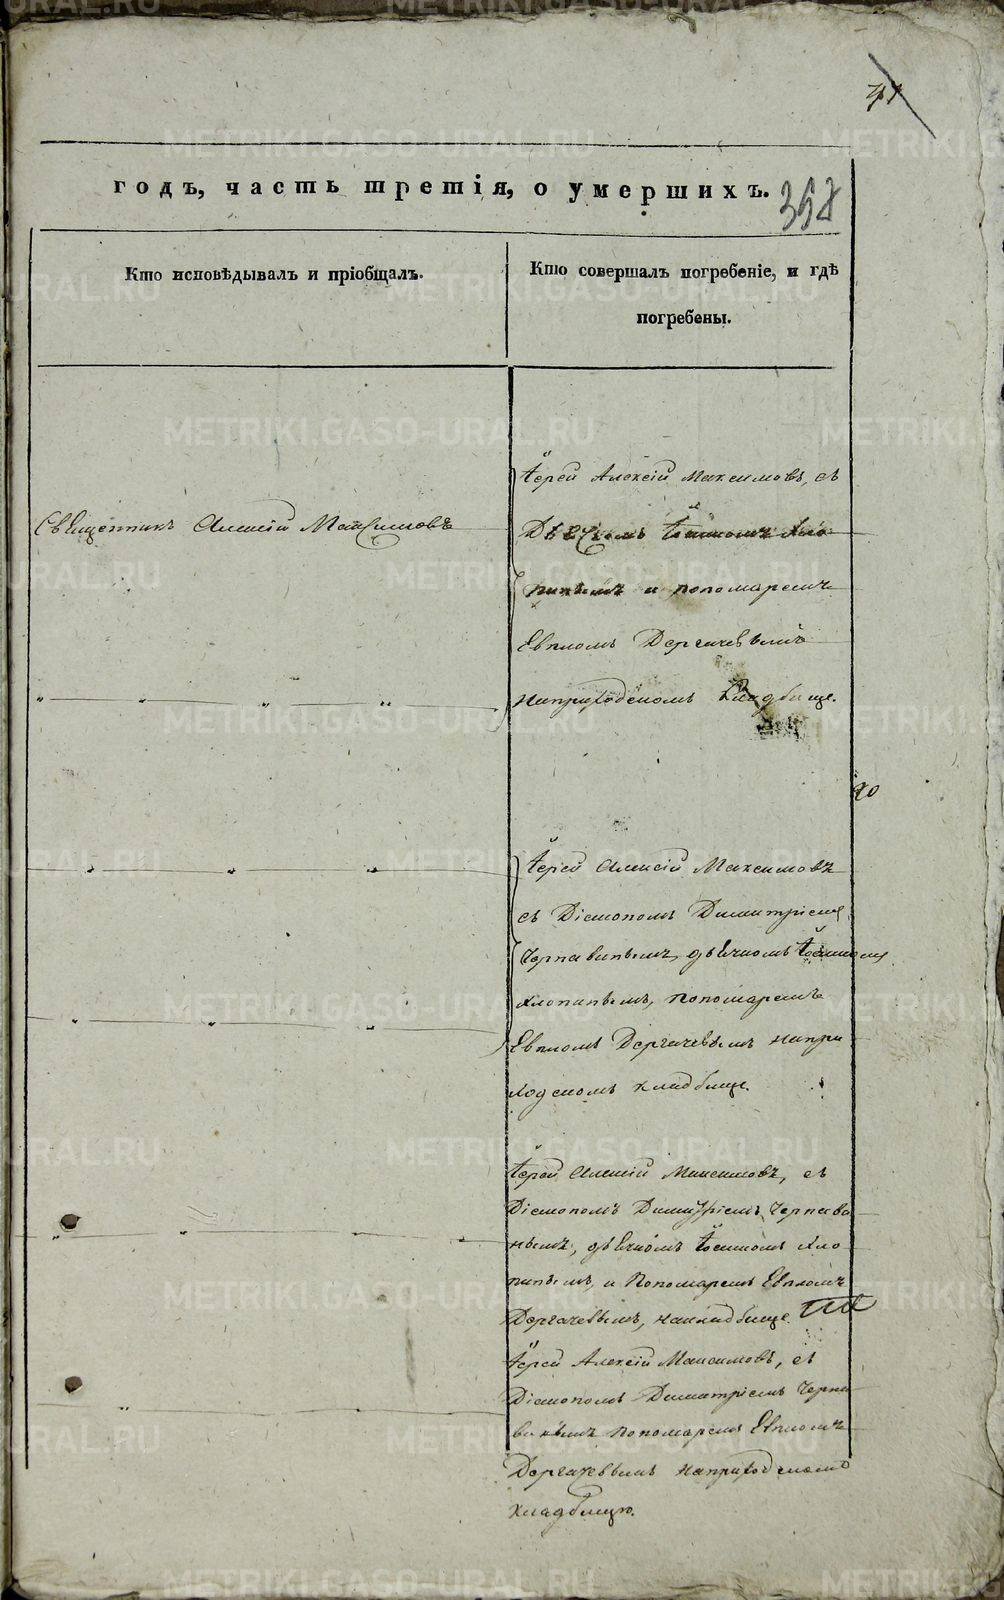 41
годъ, часть третія, о умершихъ.
Кто исповѣдывалъ и пріобщалъ.
Кто совершалъ погребеніе, и гдѣ
погребены.
Священникъ Алексій Максимовъ
Іерей Алексій Максимовъ, съ
Дьячкомъ Іоанномъ Хло
пинымъ и пономаремъ
Евпломъ Дергачевымъ
на приходскомъ кладбище.
Іерей Алексій Максимовъ
съ Діакономъ Димитріемъ
Чернавинымъ, дьячкомъ Іоанномъ
Хлопинымъ, пономаремъ
Евпломъ Дергачевымъ на при
ходскомъ кладбище.
Іерей Алексій Максимовъ, съ
Діакономъ Димитріемъ Чернави
нымъ, дьячкомъ Іоанномъ Хло
пинымъ, и Пономаремъ Евпломъ
Дергачевымъ, на кладбище
Іерей Алексій Максимовъ, съ
Діакономъ Димитріемъ Черна
винымъ пономаремъ Евпломъ
Дергачевымъ на приходскомъ
кладбищѣ.
METRIKI.GASO-URAL.RU